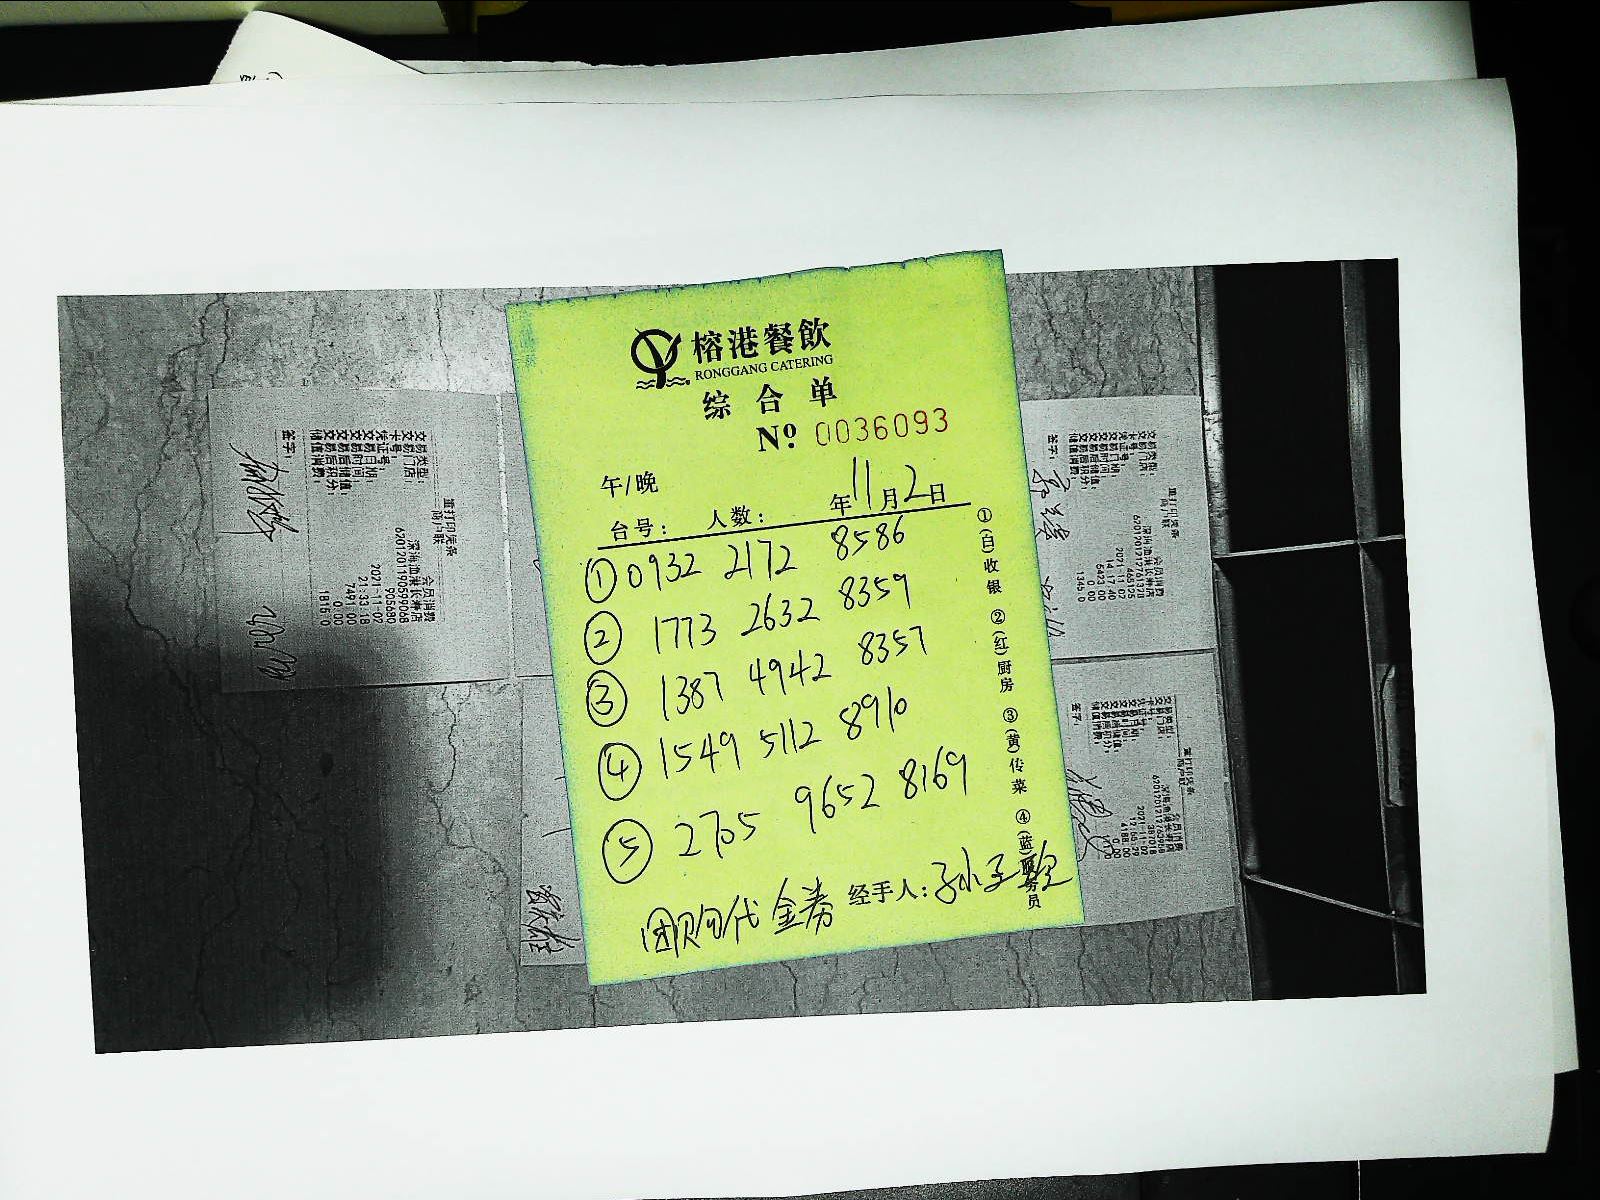 榕港餐飲
RONGGANG CATERING
综合单
Nº 0036093
午/晚
台号: 人数: 年11月2日
①0932 2172 8586
② 1773 2632 8359
③ 1387 4942 8357
④ 1549 5112 8910
⑤ 2705 9652 8169
团购代金券 经手人:
①(白)收银 ②(红)厨房 ③(黄)传菜 ④(蓝)服务员
重打印凭条
商户联
交易类型: 会员消费
交易门店: 深海渔港长寿店
卡号: 6201201190599068
凭证号: 905680
交易日期: 2021-11-02
交易时间: 21:33:18
交易后储值: 7491.00
交易后积分: 0.00
储值消费: 1816.0
签字:
重打印凭条
商户联
交易类型: 会员消费
交易门店: 深海渔港长寿店
卡号:
凭证号:
交易日期: 2021-11-02
交易时间: 14:17:40
交易后储值: 5423.00
交易后积分: 0.00
储值消费: 1346.0
签字:
重打印凭条
交易类型: 会员消费
交易门店: 深海渔港长寿店
卡号:
凭证号: 387018
交易日期: 2021-11-02
交易时间:
交易后储值: 4188.00
交易后积分: 0.00
储值消费:
签字: